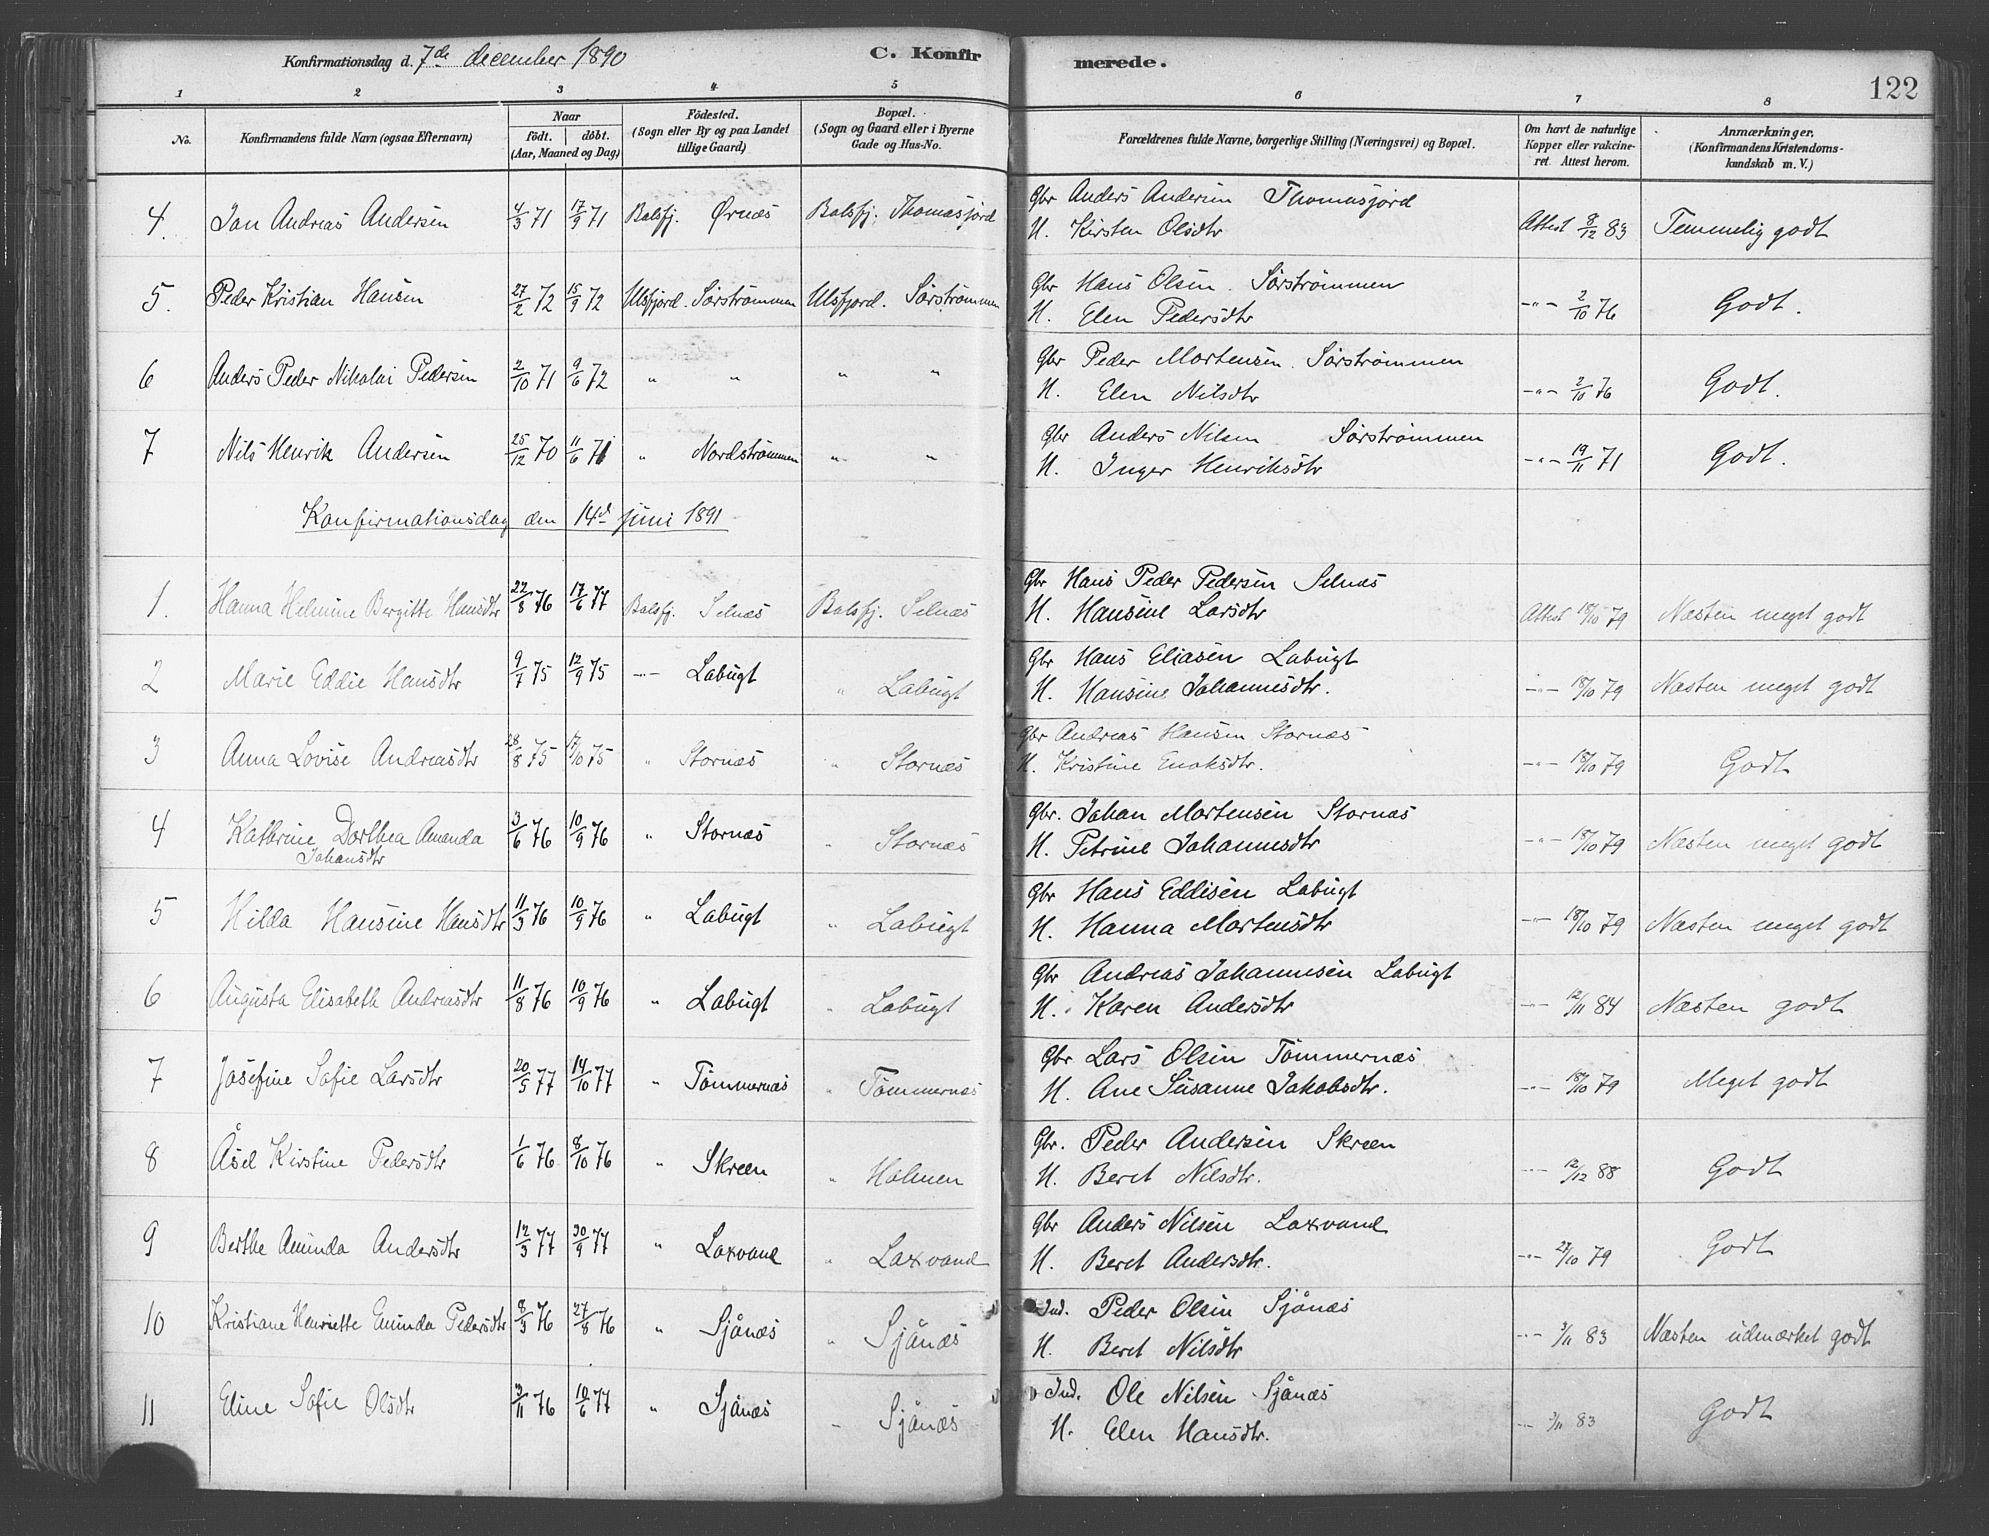 Konfirmationsdag d. 7de december 1890 C. Konfirmerede. 122
1 2 3 4 5 6 7 8
No. Konfirmandens fulde Navn (ogsaa Efternavn) Naar født. døbt. (Aar, Maaned og Dag) Fødested. (Sogn eller By og paa Landet tillige Gaard) Bopæl. (Sogn og Gaard eller i Byerne Gade og Hus-No. Forældrenes fulde Navne, borgerlige Stilling (Næringsvei) og Bopæl. Om havt de naturlige Kopper eller vakcineret. Attest herom. Anmærkninger. (Konfirmandens Kristendomskundskab m. V.)
4. Jan Andreas Andersen 4/3 71 17/9 71 Balsfj. Ørnæs Balsfj. Thomasjord Gbr Anders Andersen Thomasjord Attest 8/12 83 Temmelig godt
H. Kirsten Olsdtr
5. Peder Kristian Hansen 27/2 72 15/9 72 Ulsfjord. Sørstrømmen Ulsfjord. Sørstrømmen Gbr Hans Olsen. Sørstrømmen -"- 2/10 76 Godt.
H. Elen Pedersdtr
6 Anders Peder Nikolai Pedersen 2/10 71 9/6 72 " " " " Gbr Peder Mortensen. Sørstrømmen -"- 2/10 76 Godt.
H. Elen Nilsdtr
7 Nils Henrik Andersen 25/12 70 11/6 71 " Nordstrømmen " " Gbr Anders Nilsen Sørstrømmen -"- 19/11 71 Godt.
H. Inger Henriksdtr
Konfirmationsdag den 14de juni 1891
1. Hanna Helmine Bergitte Hansdtr 22/8 76 17/6 77 Balsfj. Selnæs Balsfj. Selnæs Gbr Hans Peder Pedersen Selnæs Attest 18/10 79 Næsten meget godt
H. Hansine Larsdtr
2 Marie Eddie Hansdtr 9/7 75 12/9 75 -"- Labugt " Labugt Gbr Hans Eliasen Labugt -"- 18/10 79 Næsten meget godt
H. Hansine Johannesdtr.
3 Anna Lovise Andreasdtr 28/8 75 17/10 75 " Stornæs " Stornæs Gbr Andreas Hansen Stornæs -"- 18/10 79 Godt
H. Kristine Enoksdtr.
4 Kathrine Dorthea Amanda Johansdtr 3/6 76 10/9 76 " Stornæs " Stornæs Gbr. Johan Mortensen Stornæs -"- 18/10 79 Næsten meget godt
H. Petrine Johannesdtr
5 Hilda Hansine Hansdtr 11/3 76 10/9 76 " Labugt " Labugt Gbr Hans Eddisen Labugt -"- 18/10 79 Næsten meget godt
H. Hanna Mortensdtr
6 Augusta Elisabeth Andreasdtr 11/8 76 10/9 76 " Labugt " Labugt Gbr Andreas Johannesen Labugt -"- 12/11 84 Næsten godt
H. Karen Andersdtr
7 Josefine Sofie Larsdtr 20/5 77 14/10 77 " Tømmernæs " Tømmernæs Gbr Lars Olsen Tømmernæs -"- 18/10 79 Meget godt
H. Ane Susanne Jakobsdtr.
8 Åsel Kirstine Pedersdtr 1/6 76 8/10 76 " Skreen " Holmen Gbr. Peder Andersen Skreen -"- 12/12 88 Godt
H. Beret Nilsdtr.
9 Berthe Aminda Andersdtr 12/3 77 30/9 77 " Laxvand " Laxvand Gbr Anders Nilsen Laxvand -"- 27/10 79 Godt
H. Beret Andersdtr.
10 Kristiane Henriette Eminda Pedersdtr 8/3 76 27/8 76 " Sjånæs " Sjånæs Ind. Peder Olsen Sjånæs -"- 3/11 83 Næsten udmærket godt
H. Beret Nilsdtr
11 Eline Sofie Olsdtr 3/11 76 10/6 77 " Sjånæs - Sjånæs Ind. Ole Nilsen Sjånæs -"- 3/11 83 Godt
H. Elen Hansdtr.